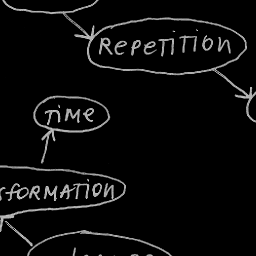 REPETITION
TIME
SFORMATION